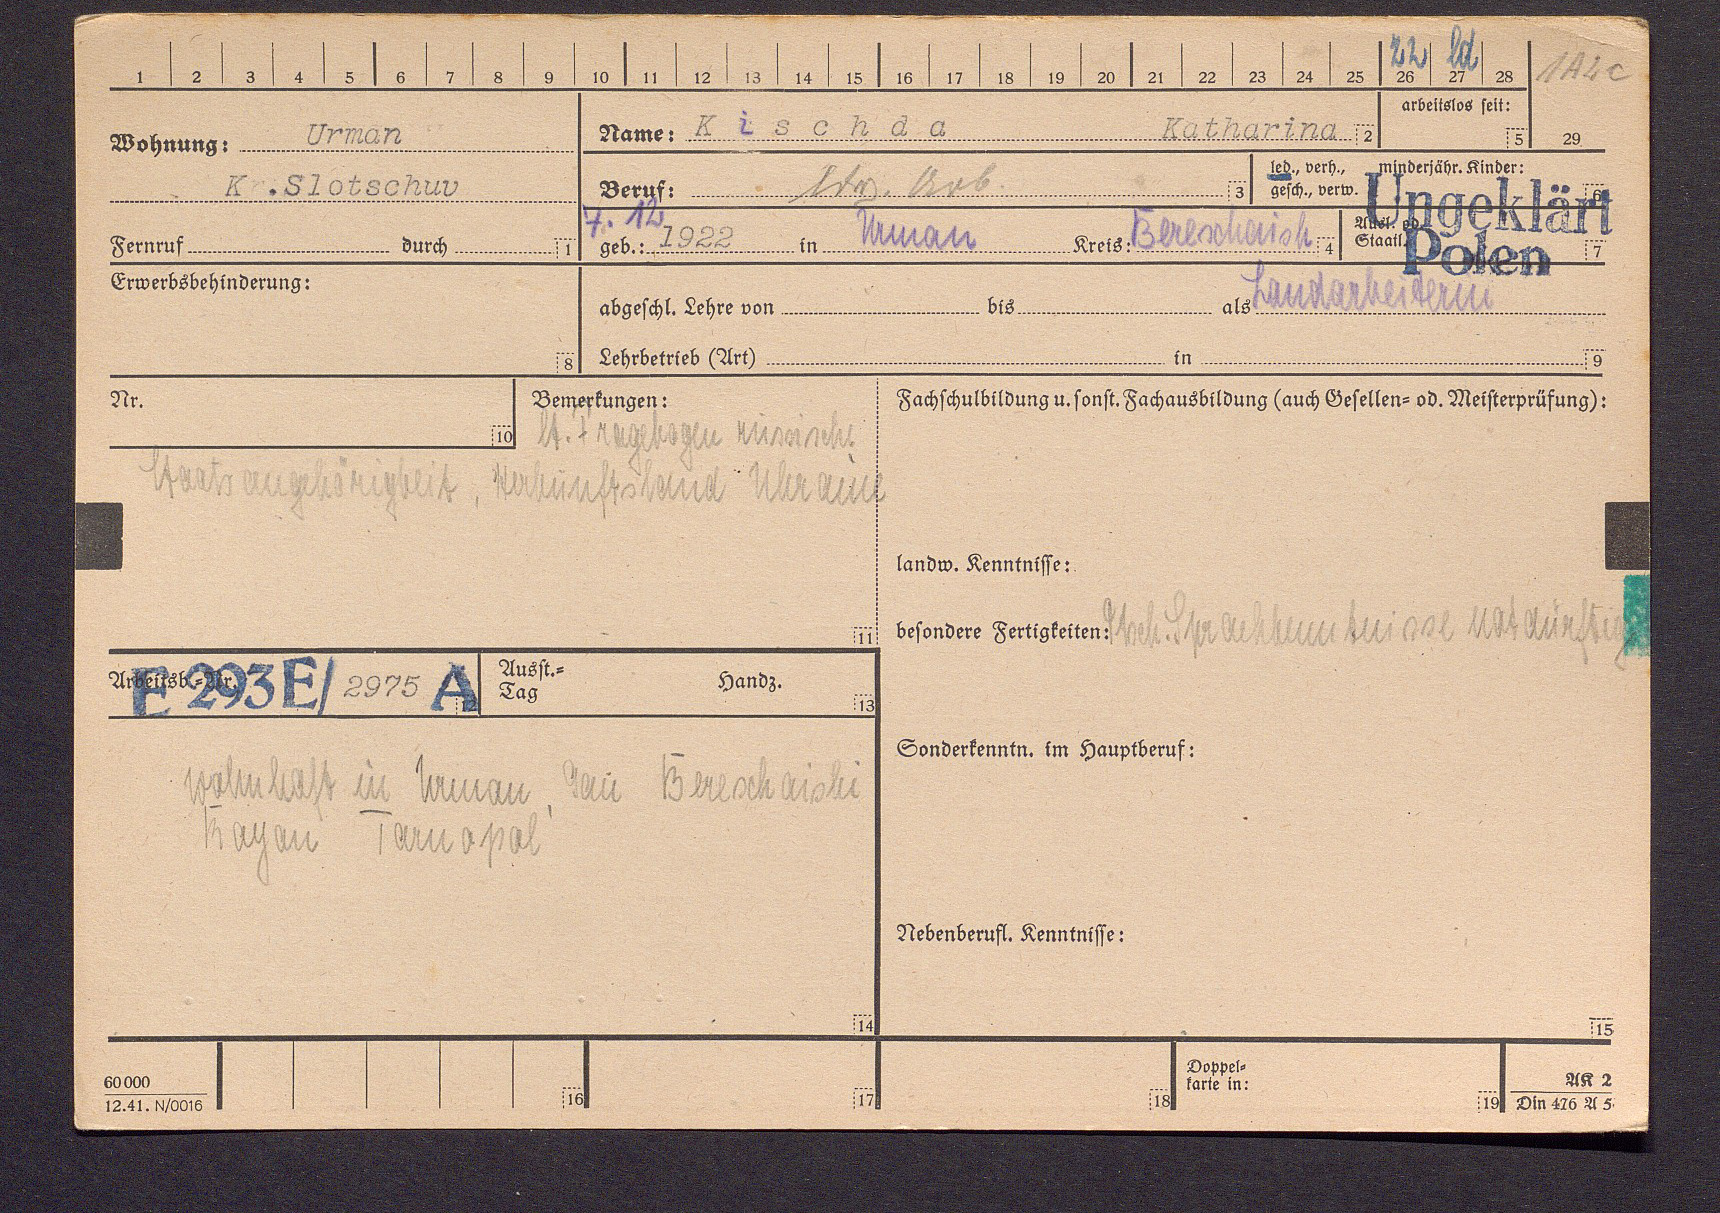 22 ld
1 2 3 4 5 6 7 8 9 10 11 12 13 14 15 16 17 18 19 20 21 22 23 24 25 26 27 28 1A2c
arbeitslos seit:
Wohnung: Urman Name: Kischda Katharina 2 5 29
Kr.Slotschuv Beruf: ldw. Arb. 3 led., verh., minderjähr. Kinder:
gesch., verw. 6
Ungeklärt
7. 12
Fernruf durch 1 geb.: 1922 in Urman Kreis: Bereschaisk 4 Ausl. od. Staatl. 7
Polen
Erwerbsbehinderung:
abgeschl. Lehre von bis als Landarbeiterin
8 Lehrbetrieb (Art) in 9
Nr. 10 Bemerkungen:
lt. Fragebogen russische
Staatsangehörigkeit, Herkunftsland Ukraine
11
Fachschulbildung u. sonst. Fachausbildung (auch Gesellen= od. Meisterprüfung):
landw. Kenntnisse:
besondere Fertigkeiten: Dtsch. Sprachkenntnisse notdürftig
Arbeitsb.=Nr. E 293 E/ 2975 A Ausst.= Tag Handz. 13
wohnhaft in Urman, Gau Bereschaiski
Rayon Tarnopol
14
Sonderkenntn. im Hauptberuf:
Nebenberufl. Kenntnisse:
15
60000
12.41. N/0016
16 17 18
Doppel=
karte in:
19
AK 2
Din 476 A 5